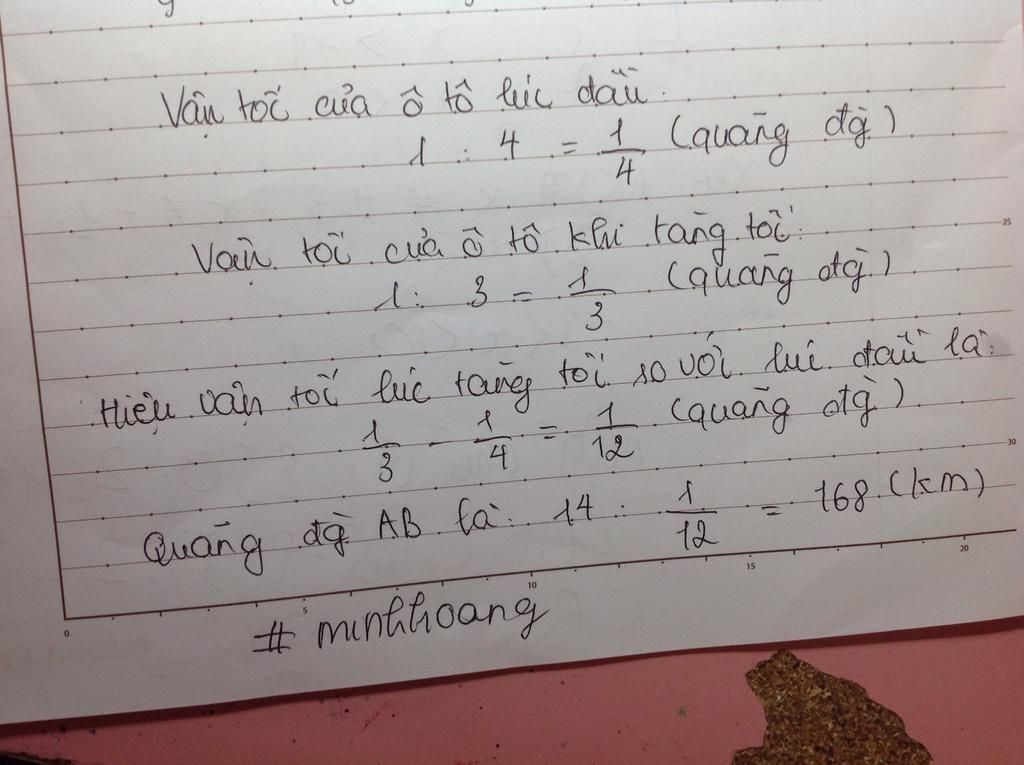 Vận tốc của ô tô lúc đầu:
1 : 4 = 1/4 (quãng đg)
Vận tốc của ô tô khi tăng tốc:
1 : 3 = 1/3 (quãng đg)
Hiệu vận tốc lúc tăng tốc so với lúc đầu là:
1/3 - 1/4 = 1/12 (quãng đg)
Quãng đg AB là: 14 : 1/12 = 168 (km)
# minhhoang
0 5 10 15 20
25
30